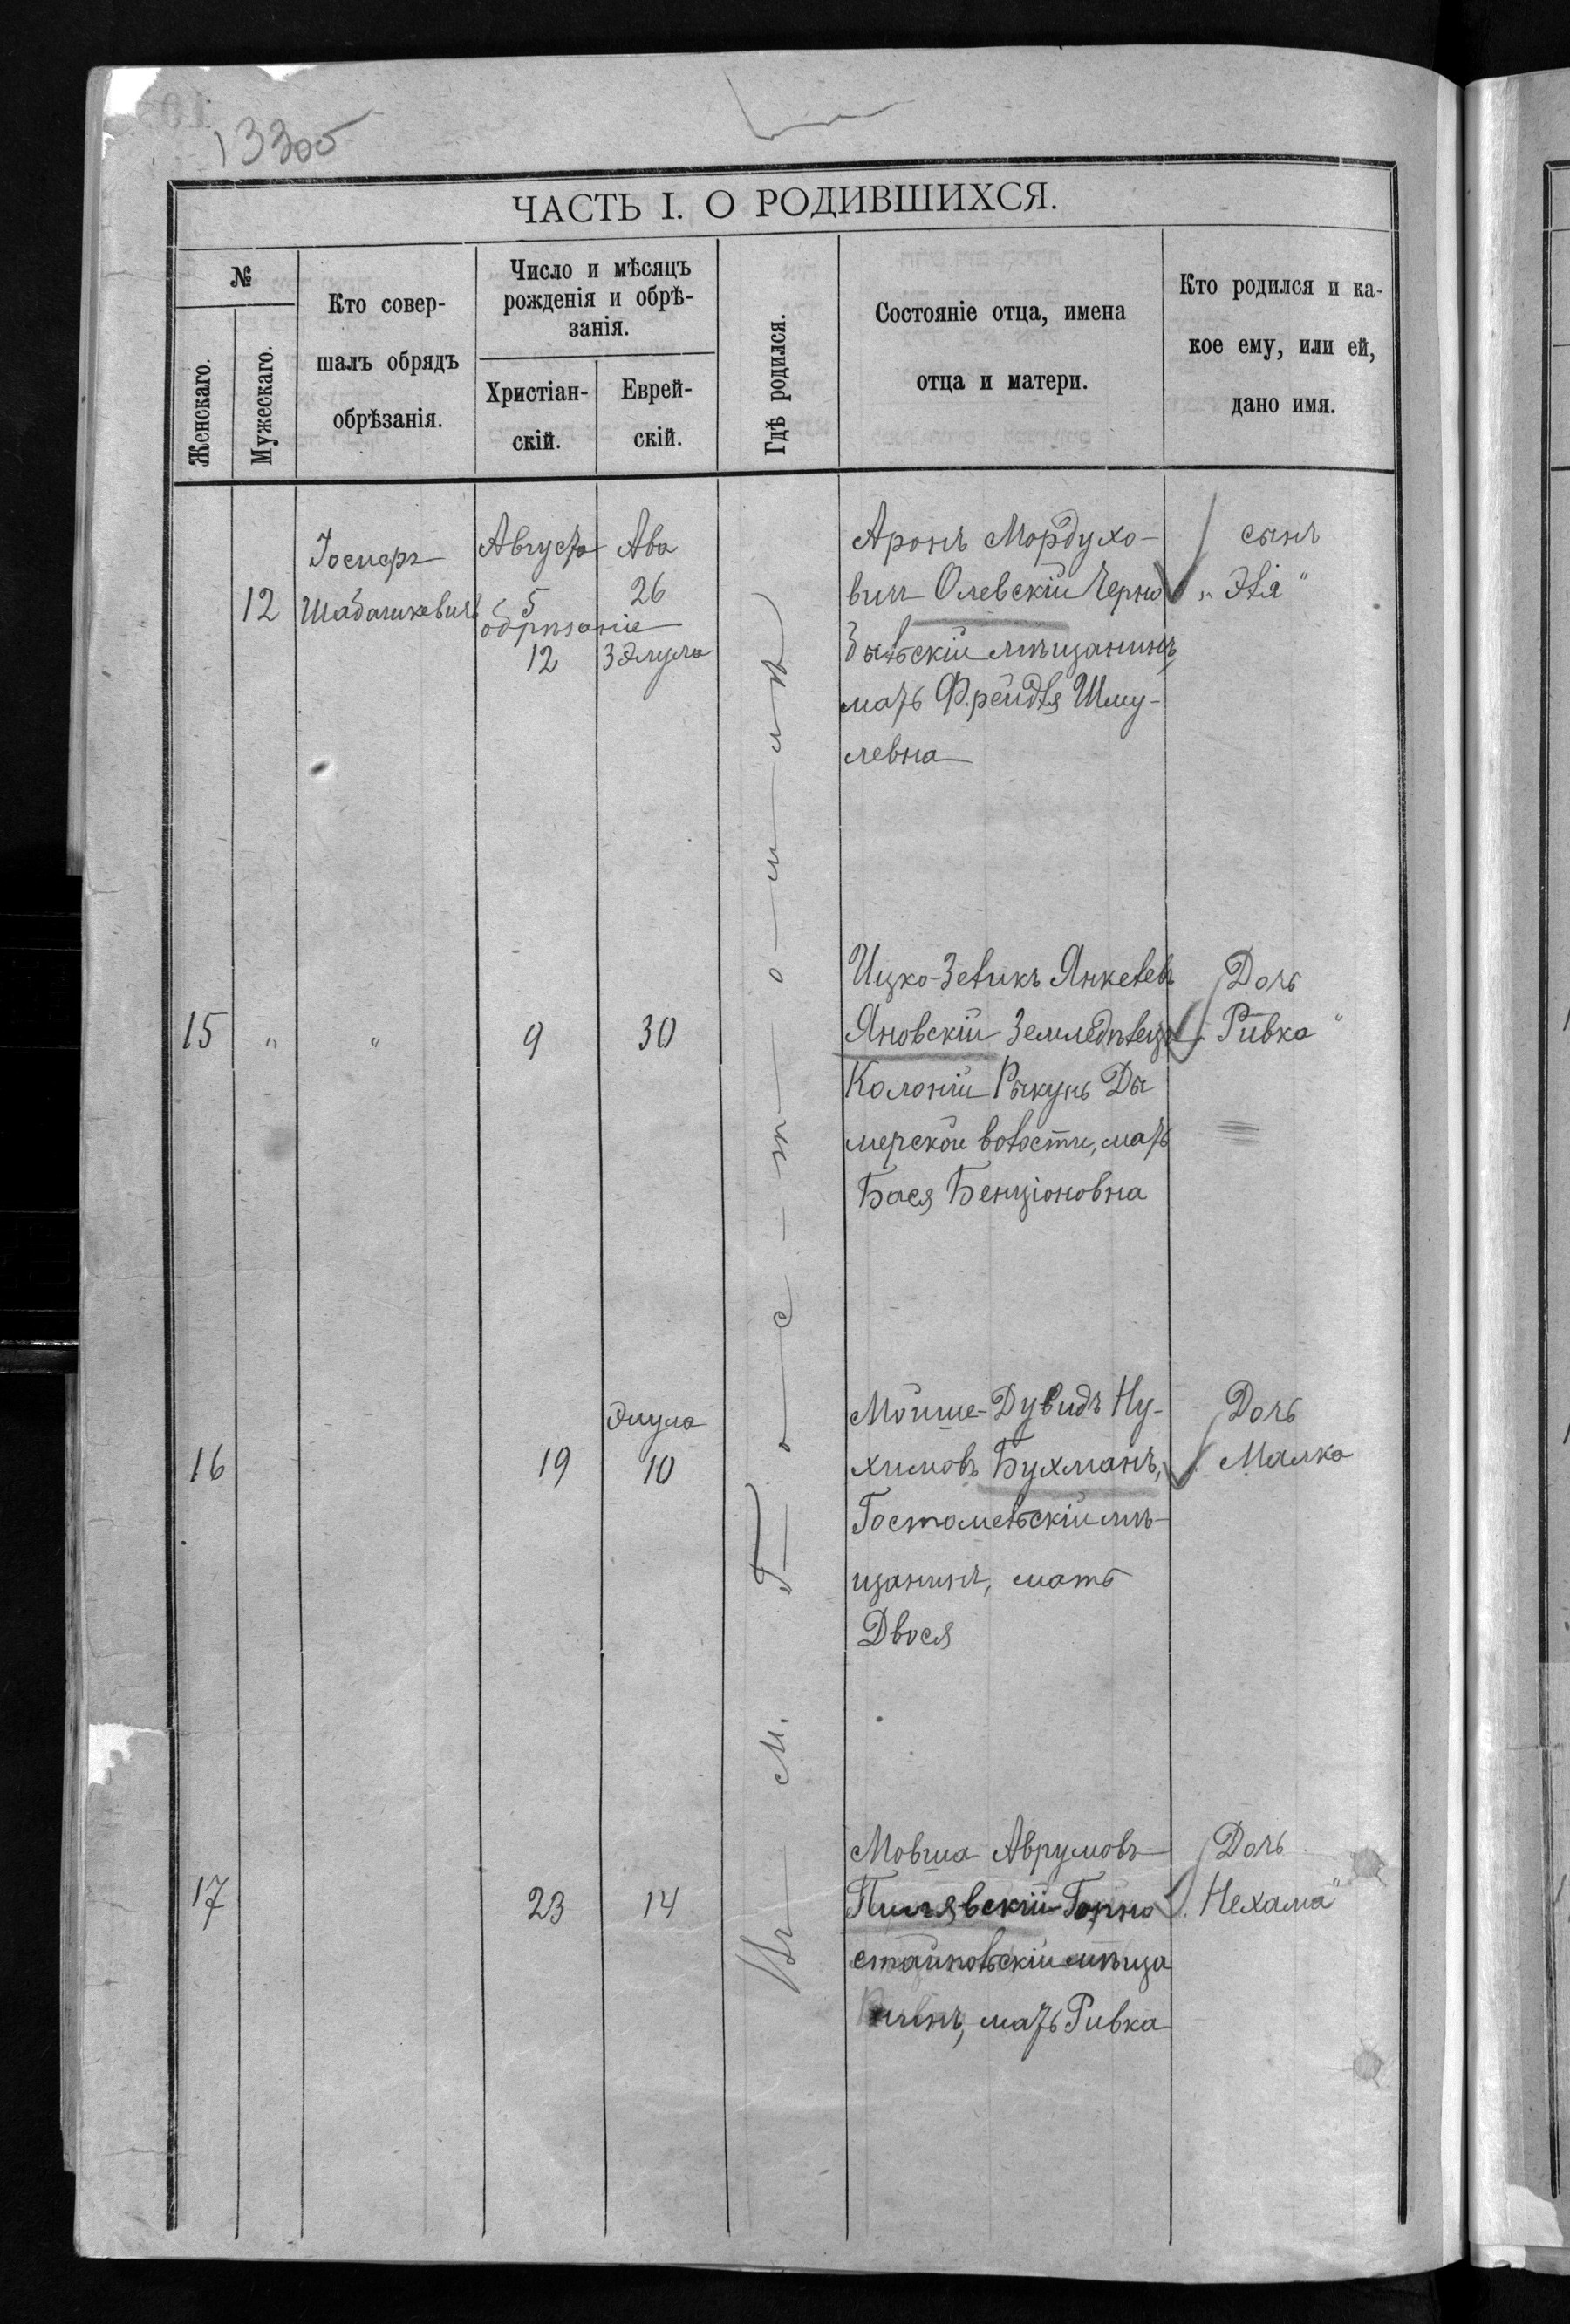 13305
ЧАСТЬ I. О РОДИВШИХСЯ.
№
Женскаго.
Мужескаго.
Кто совер-
шалъ обрядъ
обрѣзанія.
Число и мѣсяцъ
рожденія и обрѣ-
занія.
Христіан-
скій.
Еврей-
скій.
Гдѣ родился.
Состояніе отца, имена
отца и матери.
Кто родился и ка-
кое ему, или ей,
дано имя.
Въ м. Гостомлѣ
12
Іосифъ
Шабашкевичъ
Августа
5
обрѣзаніе
12
Ава
26
3 Элула
Аронъ Мордухо-
вич Олевскій Черно
быльскій мѣщанинъ,
мать Фрейдля Шму-
левна
сынъ
„Элія"
15
"
"
9
30
Ицко-Зеликъ Янкелевъ
Яновскій Земледѣлецъ
Колоніи Рыкунь Ды
мерской волости, мать
Бася Бенціоновна
Дочь
„Ривка"
16
19
Элула
10
Мойше-Дувидъ Ну-
химовъ Бухманъ,
Гостомельскій мѣ-
щанинъ, мать
Двося
Дочь
Малка
17
23
14
Мовша Аврумовъ
Пилявскій Горно
стайпольскій мѣща
нинъ, мать Ривка
Дочь
„Нехама"